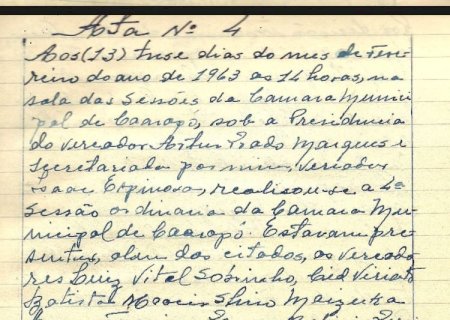 Acta Nº 4
Aos (13) trese dias do mes de Feve-
reiro do ano de 1963 as 14 horas, na
sala das Sessões da Camara Munici
pal de Caarapó, sob a Presidencia
do vereador Arthur Prado Marques e
secretariada por mim, vereador
Isaac Espinosa, realisou-se a 4a
sessão ordinaria da Camara Mu-
nicipal de Caarapó. Estavam pre
sentes, alem dos citados, os vereado
res Luiz Vital Sobrinho, Cied Viriato
Batista